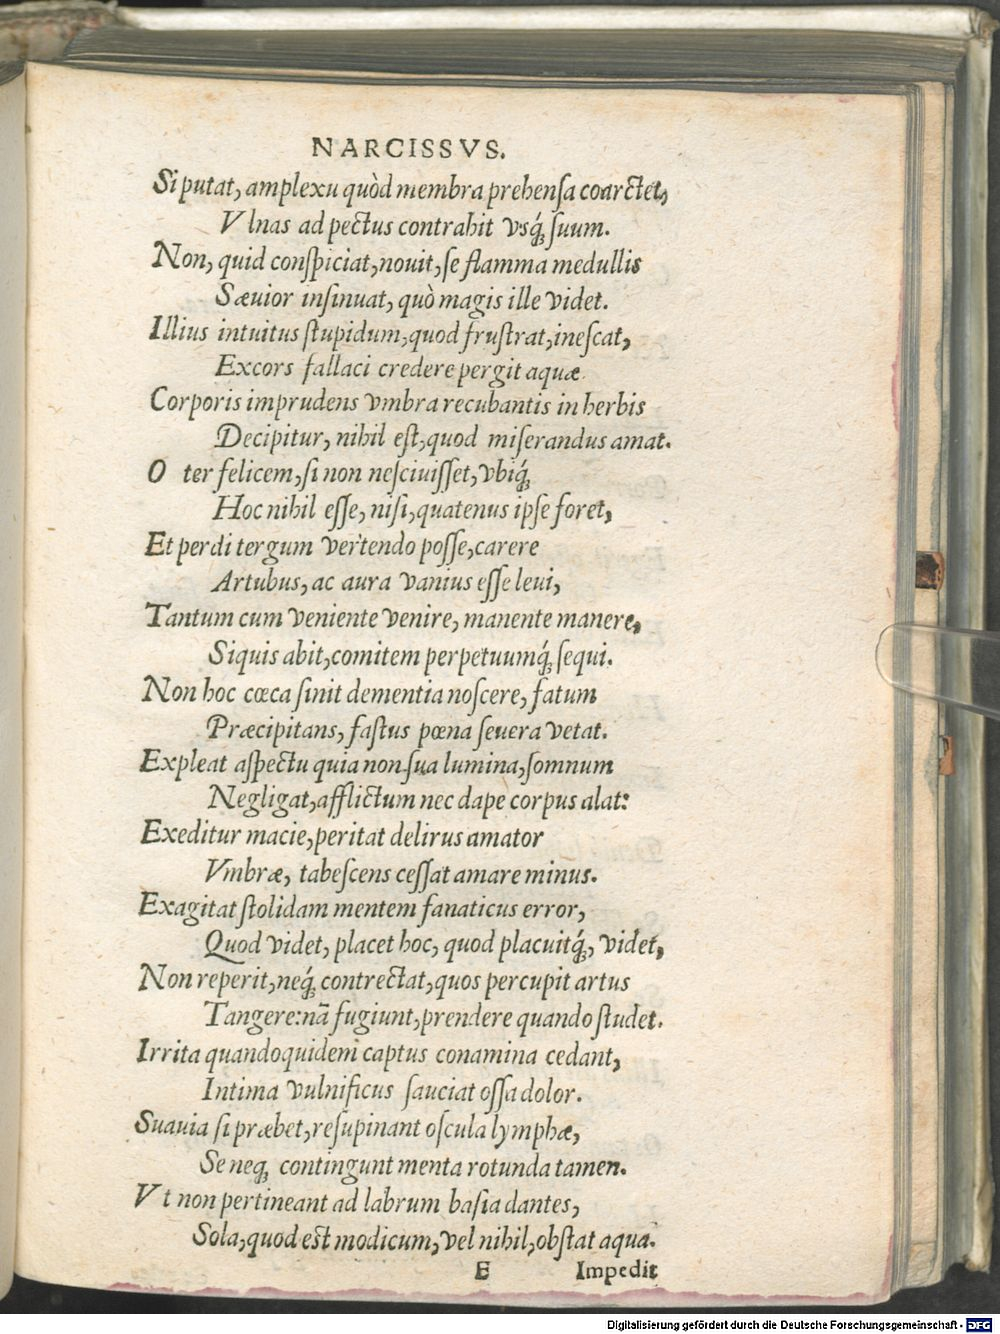 NARCISSVS.
Si putat, amplexu quòd membra prehensa coarctet,
Vlnas ad pectus contrahit vsq́ꝫ suum.
Non, quid conspiciat, nouit, se flamma medullis
Sæuior insinuat, quò magis ille videt.
Illius intuitus stupidum, quod frustrat, inescat,
Excors fallaci credere pergit aquæ.
Corporis imprudens vmbra recubantis in herbis
Decipitur, nihil est, quod miserandus amat.
O ter felicem, si non nesciuisset, vbiq́ꝫ
Hoc nihil esse, nisi, quatenus ipse foret,
Et perdi tergum vertendo posse, carere
Artubus, ac aura vanius esse leui,
Tantum cum veniente venire, manente manere,
Siquis abit, comitem perpetuumq́ꝫ sequi.
Non hoc cœca sinit dementia noscere, fatum
Præcipitans, fastus pœna seuera vetat.
Expleat aspectu quia non sua lumina, somnum
Negligat, afflictum nec dape corpus alat:
Exeditur macie, peritat delirus amator
Vmbræ, tabescens cessat amare minus.
Exagitat stolidam mentem fanaticus error,
Quod videt, placet hoc, quod placuitq́ꝫ, videt,
Non reperit, neq́ꝫ contrectat, quos percupit artus
Tangere: nã fugiunt, prendere quando studet.
Irrita quandoquidem captus conamina cedant,
Intima vulnificus sauciat ossa dolor.
Suauia si præbet, resupinant oscula lymphæ,
Se neqꝫ contingunt menta rotunda tamen.
Vt non pertineant ad labrum basia dantes,
Sola, quod est modicum, vel nihil, obstat aqua.
E Impedit
Digitalisierung gefördert durch die Deutsche Forschungsgemeinschaft - DFG